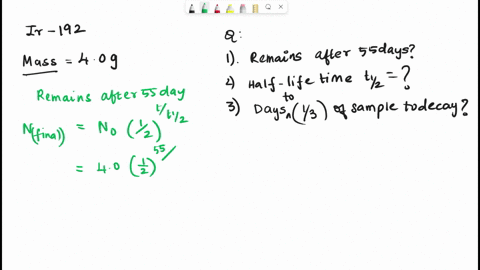 Ir-192
Mass = 4.0g
Remains after 55 day
N(final) = N0 (1/2)^t/t1/2
= 4.0 (1/2)^55/
Q:
1). Remains after 55days?
2) Half-life time t1/2 = ?
3) Days to (1/3) of sample to decay?